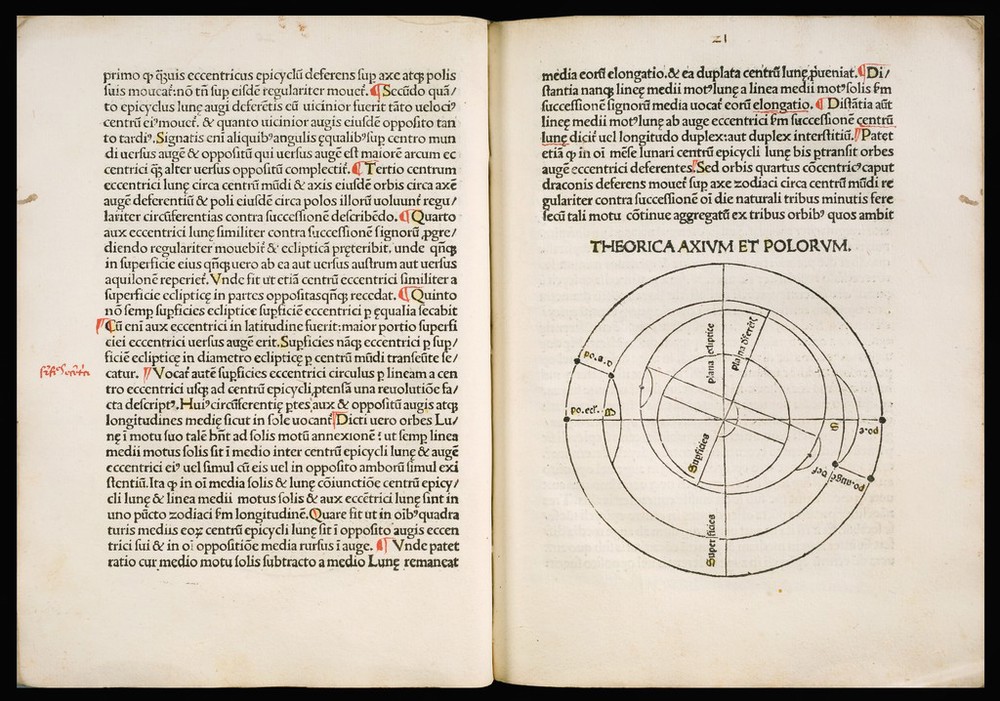 primo ꝙ q̃uis eccentricus epicyclũ deferens sup axe atq; polis
suis moueať: nõ tñ sup eisdẽ regulariter moueť. ¶ Secũdo quã/
to epicyclus lunę augi deferẽtis eũ uicinior fuerit tãto uelociꝰ
centrũ eiꝰ moueť. & quanto uicinior augis eiusdẽ opposito tan
to tardiꝰ. Signatis eni aliquibꝰ angulis ęqualibꝰ sup centro mun
di uersus augẽ & oppositũ qui uersus augẽ est maiorẽ arcum ec
centrici q̃; alter uersus oppositũ complectiť. ¶ Tertio centrum
eccentrici lunę circa centrũ mũdi & axis eiusdẽ orbis circa axẽ
augẽ deferentiũ & poli eiusdẽ circa polos illorũ uoluunť regu/
lariter circũferentias contra successionẽ describẽdo. ¶ Quarto
aux eccentrici lunę similiter contra successionẽ signorũ ꝓgre/
diendo regulariter mouebiť & eclipticã pręteribit. unde qñq;
in superficie eius qñq; uero ab ea aut uersus austrum aut uersus
aquilonẽ reperieť. Vnde fit ut etiã centrũ eccentrici similiter a
superficie eclipticę in partes oppositas qñq; recedat. ¶ Quinto
nõ semp supficies eclipticę supficiẽ eccentrici p ęqualia secabit
¶ Cũ eni aux eccentrici in latitudine fuerit: maior portio superfi
ciei eccentrici uersus augẽ erit. Supficies nãq; eccentrici p sup/
ficiẽ eclipticę in diametro eclipticę p centrũ mũdi transeũte se/
catur. ¶ Vocať autẽ supficies eccentrici circulus p lineam a cen
tro eccentrici usq; ad centrũ epicycli ꝓtensã una reuolutiõe fa/
cta descriptꝰ. Huiꝰ circũferentię ptes aux & oppositũ augis atq;
longitudines medię sicut in sole uocanť ¶ Dicti uero orbes Lu/
nę i motu suo talẽ hñt ad solis motũ annexionẽ: ut semp linea
medii motus solis sit i medio inter centrũ epicycli lunę & augẽ
eccentrici eiꝰ uel simul cũ eis uel in opposito amborũ simul exi
stentiũ. Ita ꝙ in oi media solis & lunę cõiunctiõe centrũ epicy/
cli lunę & linea medii motus solis & aux eccẽtrici lunę sint in
uno pũcto zodiaci sm longitudinẽ. Quare fit ut in oibꝰ quadra
turis medius eoꝝ centrũ epicycli lunę sit i opposito augis eccen
trici sui & in oi oppositiõe media rursus i auge. ¶ Vnde patet
ratio cur medio motu solis subtracto a medio Lunę remaneat
21
media eorũ elongatio. & ea duplata centrũ lunę ꝓueniat. ¶ Di/
stantia nanq; lineę medii motꝰ lunę a linea medii motꝰ solis sm
successionẽ signorũ media uocať eorũ elongatio. ¶ Distãtia aũt
lineę medii motꝰ lunę ab auge eccentrici sm successionẽ centrũ
lunę diciť uel longitudo duplex: aut duplex interstitiũ. ¶ Patet
etiã ꝙ in oi mẽse lunari centrũ epicycli lunę bis ptransit orbes
augẽ eccentrici deferentes. ¶ Sed orbis quartus cõcentricꝰ caput
draconis deferens moueť sup axe zodiaci circa centrũ mũdi re
gulariter contra successionẽ oi die naturali tribus minutis fere
secũ tali motu cõtinue aggregatũ ex tribus orbibꝰ quos ambit
THEORICA AXIVM ET POLORVM.
plana ecliptice
plana diferẽtis
po. a. d
po. ecl.
Supficies
Superficies
po. e
po. augẽ def